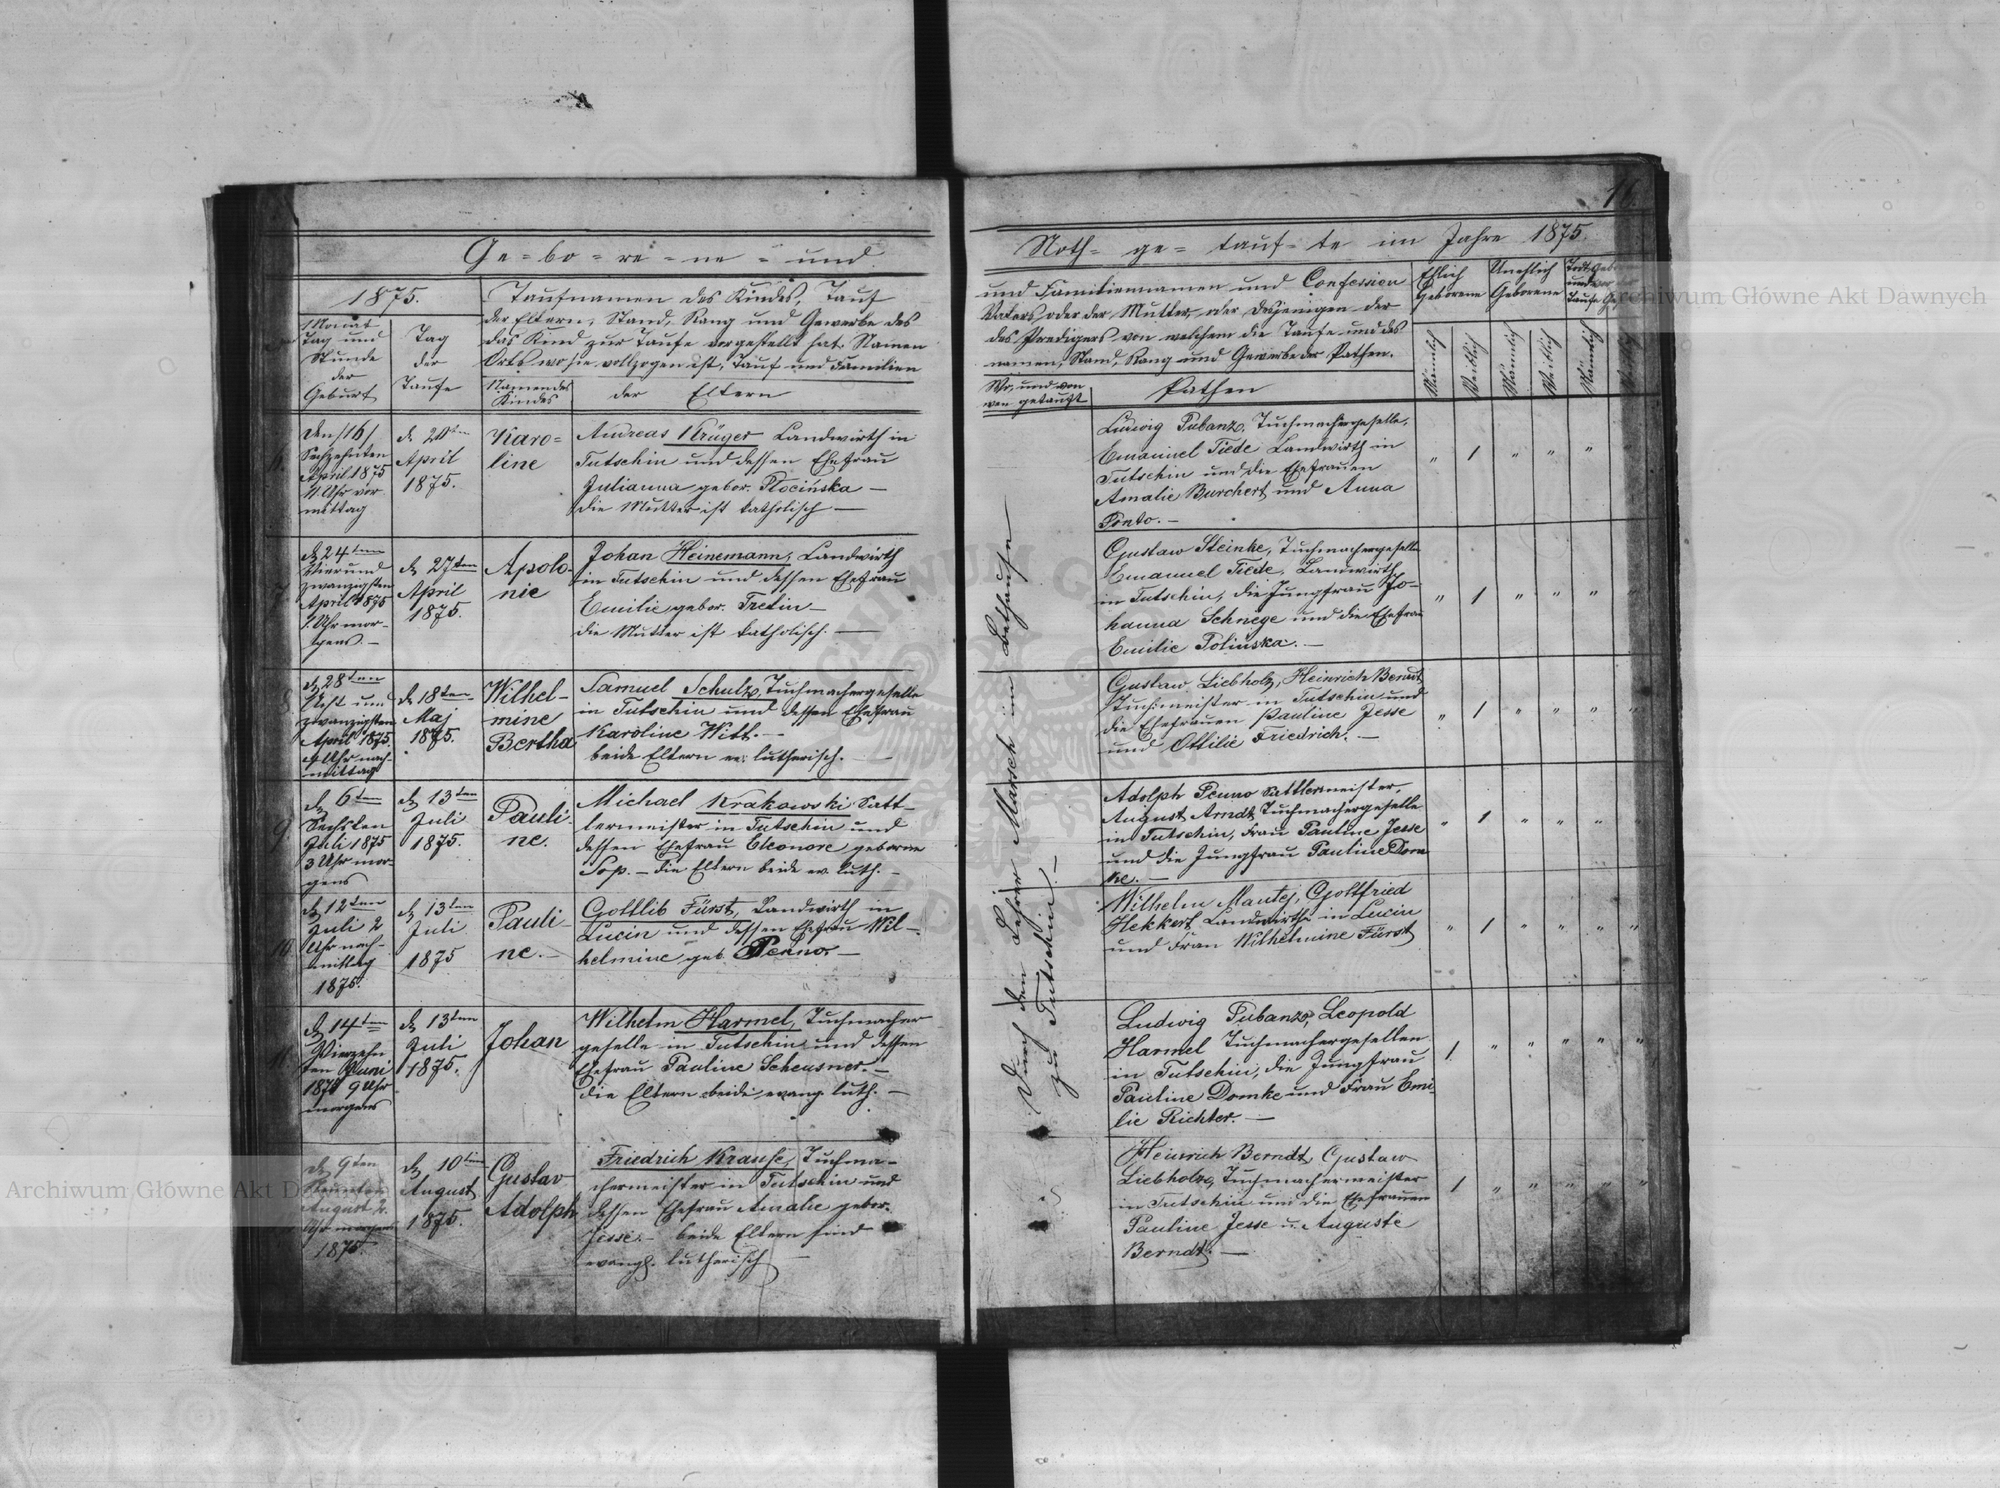 16.
Ge=bo=re=ne= und
1875.
Taufnamen des Kindes, Tauf
der Eltern, Stand, Rang und Gewerbe des
das Kind zur Taufe vorgestellt hat. Namen
Orts wo sie vollzogen ist, Tauf und Familien
Monat
Tag und
Stunde
der
Geburt
Tag
der
Taufe
Namen des
Kindes
der Eltern
Den /16/
Sechzehnten
April 1875
11 Uhr vor-
mittag
d. 20ten
April
1875.
Karo=
line
Andreas Krüger Landwirth in
Tutschin und dessen Ehefrau
Julianna gebor. Plocińska —
die Mutter ist katholisch —
7.
d. 24ten
Vier und
zwanzigsten
April 1875
1. Uhr mor-
gens —
d. 27ten
April
1875.
Apolo-
nie
Johan Heinemann, Landwirth
in Tutschin und dessen Ehefrau
Emilie gebor. Tretin —
die Mutter ist katholisch. —
8.
d. 28ten
Acht und
zwanzigsten
April 1875.
4 Uhr nach-
mittag
d. 18ten
Maj
1875.
Wilhel-
mine
Bertha
Samuel Schulz, Tuchmachergeselle
in Tutschin und dessen Ehefrau
Karoline Witt. —
beide Eltern ev. lutherisch. —
9
d. 6ten
Sechsten
Juli 1875
3 Uhr mor-
gens
d. 13ten
Juli
1875.
Pauli-
ne.
Michael Krakowski Satt-
lermeister in Tutschin und
dessen Ehefrau Eleonore geborne
Sop. — die Eltern beide ev. luth. —
10.
d. 12ten
Juli 2
Uhr nach-
mittag
1875.
d. 13ten
Juli
1875
Pauli-
ne. —
Gottlib Fürst, Landwirth in
Lucin und dessen Ehefrau Wil-
helmine geb. Penno. —
11.
d. 14ten
Vierzehn
ten Juni
1875 9 Uhr
morgens
d. 13ten
Juli
1875.
Johan
Wilhelm Harmel, Tuchmacher
geselle in Tutschin und dessen
Ehefrau Pauline Scheusner. —
die Eltern beide evang. luth. —
d. 9ten
August 2.
Uhr morgens
1875.
d. 10ten
August
1875.
Gustav
Adolph
Friedrich Krause, Tuchma-
chermeister in Tutschin und
dessen Ehefrau Amalie gebor.
Jesse. — beide Eltern sind
evangl. lutherisch —
Noth= ge= tauf= te im Jahre 1875.
und Familiennamen und Confession
Vaters, oder der Mutter, oder desjenigen der
des Predigers von welchem die Taufe und des
namen, Stand, Rang und Gewerbe der Pathen.
Wo, und von
wem getauft
Pathen
Ehlich
Geborene
Unehlich
Geborene
Männlich
Weiblich
Männlich
Weiblich
Männlich
Durch den Lehrer Marsch im Bethause
zu Tutschin. —
Ludwig Pubanz, Tuchmachergeselle,
Emanuel Tiede Landwirth in
Tutschin und die Ehefrauen
Amalie Burchert und Anna
Ponto. —
" 1 " " "
Gustaw Steinke, Tuchmachergeselle
Emanuel Tiede, Landwirth
in Tutschin, die Jungfrau Jo-
hanna Schnege und die Ehefrau
Emilie Polinska. —
" 1 " " "
Gustaw Liebholz, Heinrich Berndt
Tuchmeister in Tutschin und
die Ehefrauen Pauline Jesse
und Ottilie Friedrich. —
" 1 " " " "
Adolph Penno Sattlermeister,
August Arndt Tuchmachergeselle
in Tutschin, Frau Pauline Jesse
und die Jungfrau Pauline Dom
ke. —
" 1 " " " "
Wilhelm Mantej, Gottfried
Hekkert, Landwirthe in Lucin
und Frau Wilhelmine Fürst
" 1 " " " "
Ludwig Pubanz, Leopold
Harmel Tuchmachergesellen
in Tutschin, die Jungfrau
Pauline Domke und Frau Emi-
lie Richter. —
1. " " " " "
Heinrich Berndt, Gustaw
Liebholz, Tuchmachermeister
in Tutschin und die Ehefrauen
Pauline Jesse u. Auguste
Berndt. —
1 " " " " "
Archiwum Główne Akt Dawnych
Archiwum Główne Akt Dawnych